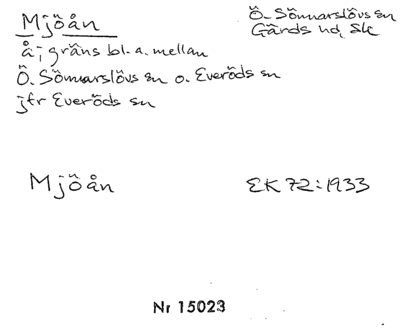 Mjöån
Ö. Sönnarslövs sn
Gärds hd, Sk
å; gräns bl. a. mellan
Ö. Sönnarslövs sn o. Everöds sn
jfr Everöds sn
Mjöån
EK 72:1933
Nr 15023